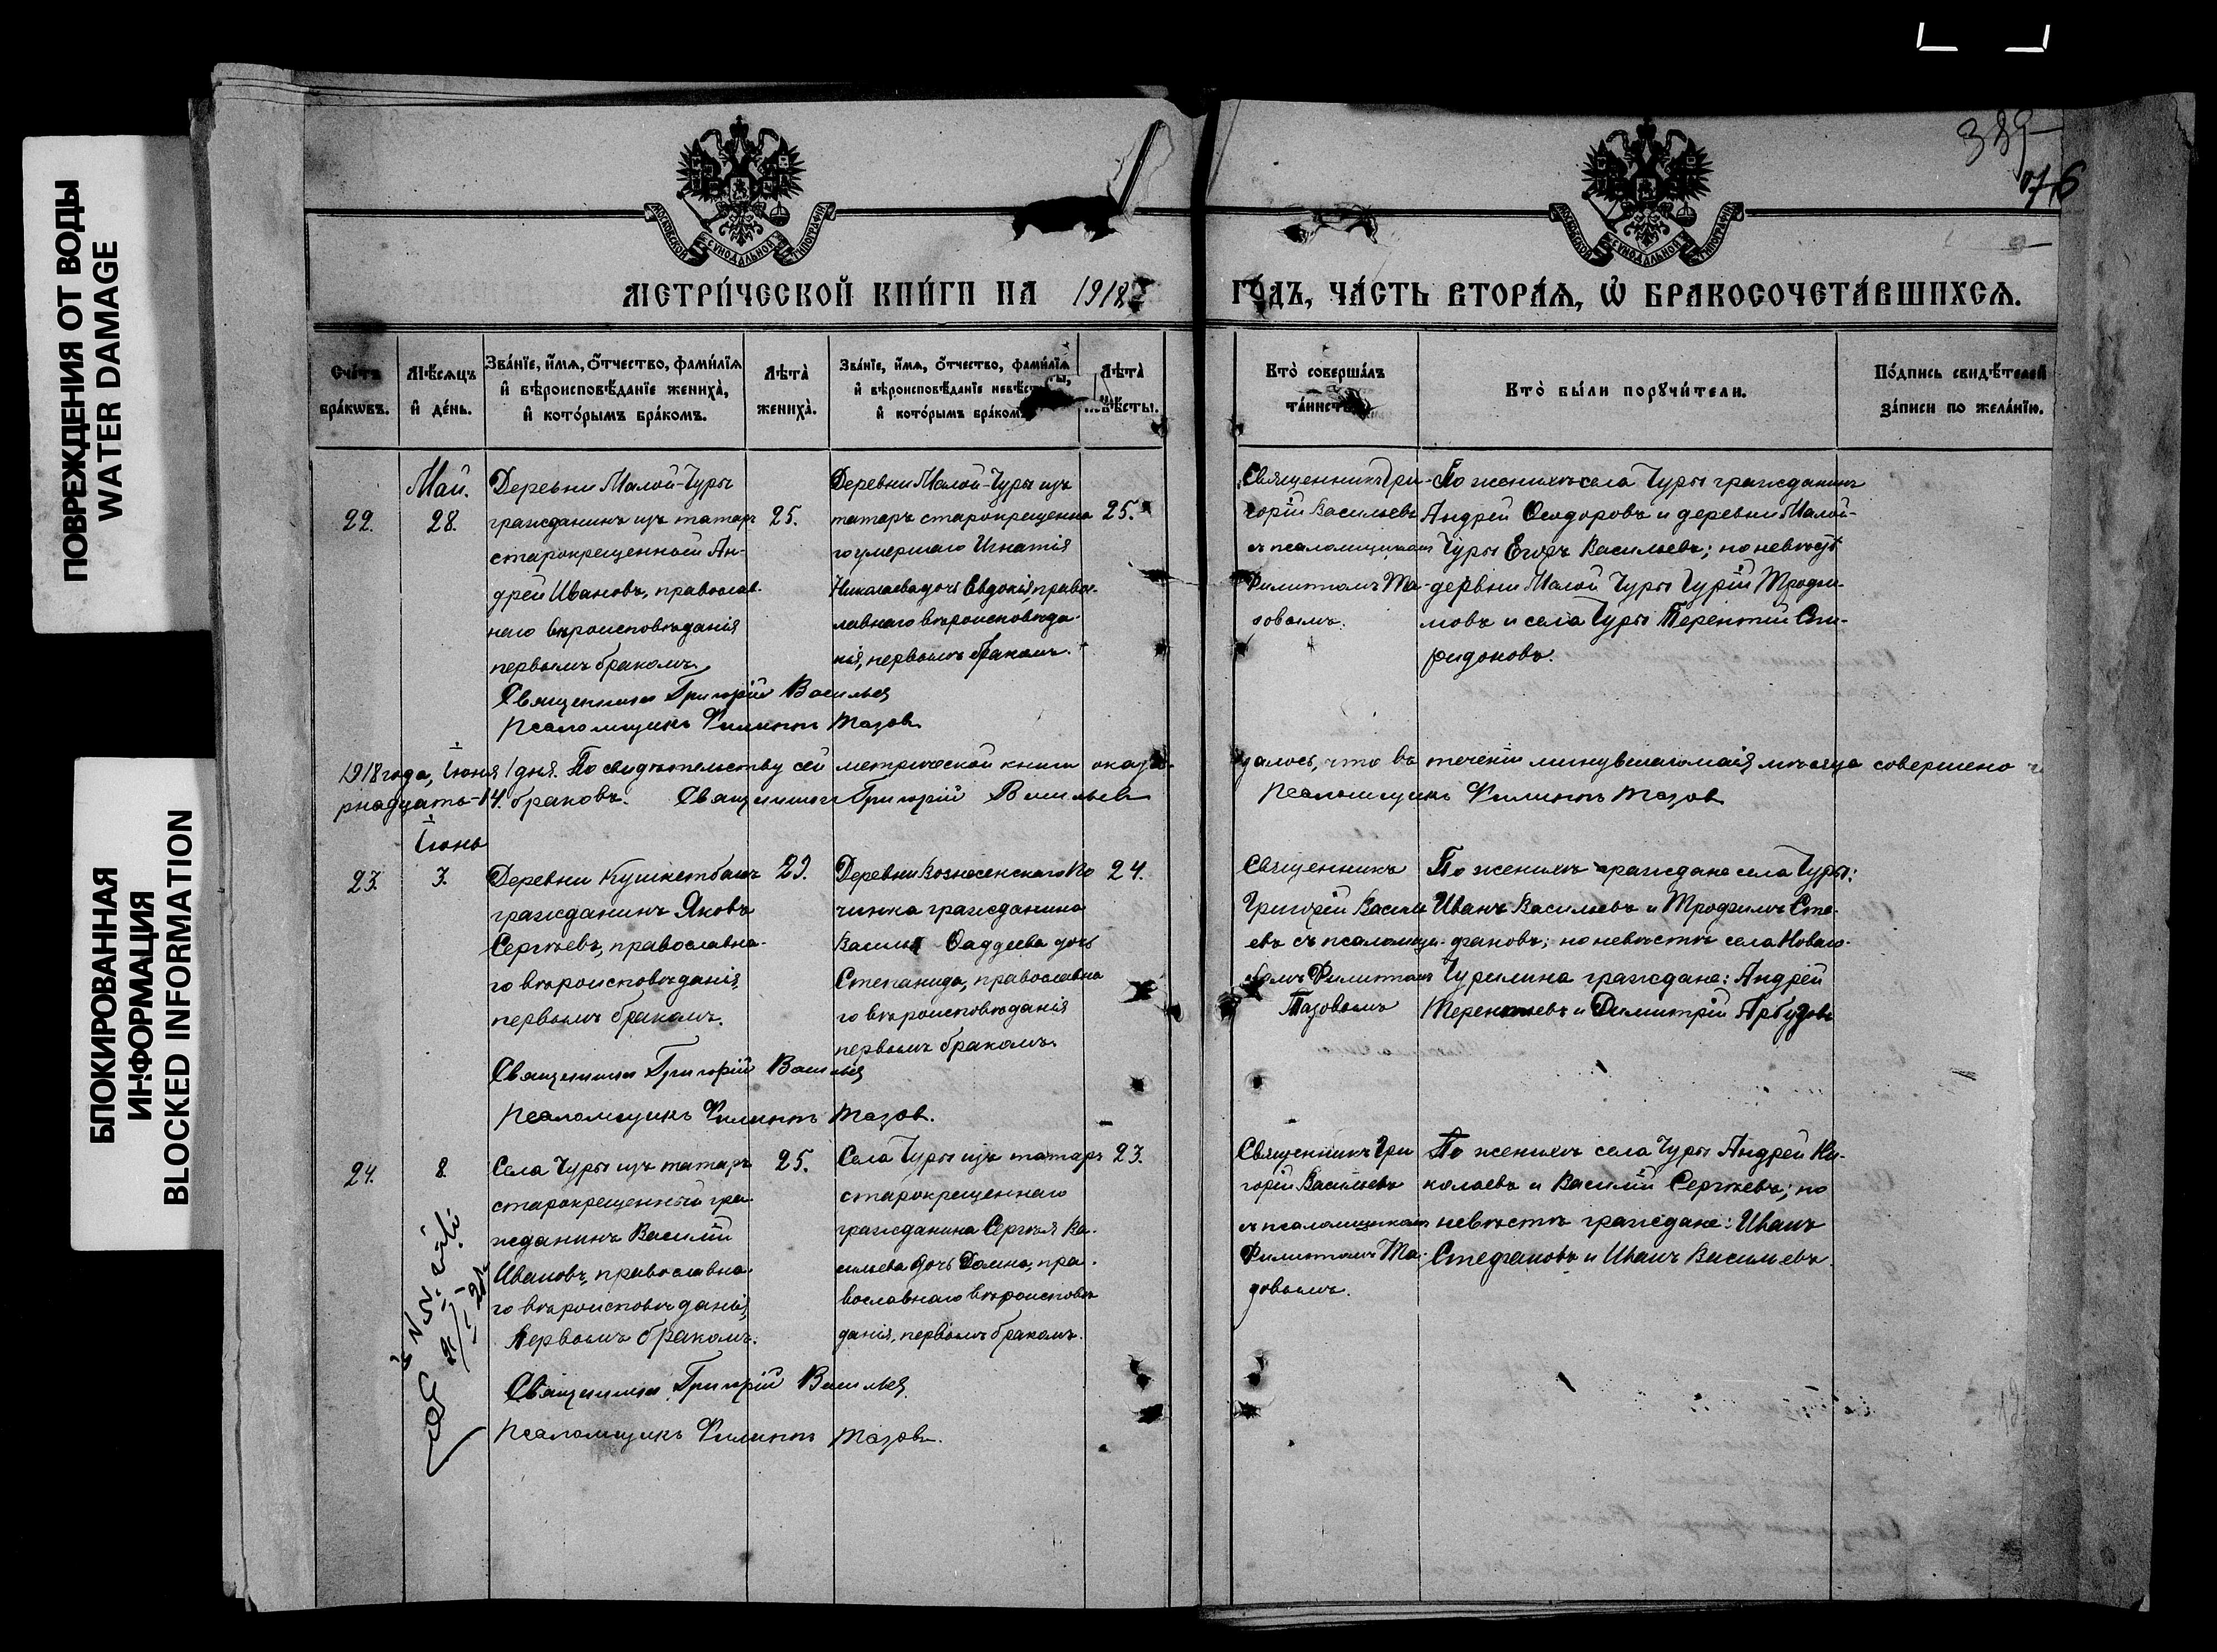 ПОВРЕЖДЕНИЯ ОТ ВОДЫ
WATER DAMAGE
БЛОКИРОВАННАЯ
ИНФОРМАЦИЯ
BLOCKED INFORMATION
389
76
МОСКОВСКОЙ СѴНОДАЛЬНОЙ ТИПОГРАФІИ
МОСКОВСКОЙ СѴНОДАЛЬНОЙ ТИПОГРАФІИ
МЕТРИ́ЧЕСКОЙ КНИ́ГИ НА 1918
ГО́ДЪ, ЧА́СТЬ ВТОРА́Ѧ, Ѡ БРАКОСОЧЕТА́ВШИХСѦ.
Сче́тъ
бра́кѡвъ.
Мѣ́сѧцъ
и҆ де́нь.
Зва́нїе, и҆́мѧ, ѻ҆́тчество, фами́лїѧ
и҆ вѣроисповѣ́данїе жениха̀,
и҆ кото́рымъ бра́комъ.
Лѣта̀
жениха̀.
Зва́нїе, и҆́мѧ, ѻ҆́тчество, фами́лїѧ
и҆ вѣроисповѣ́данїе невѣ́сты,
и҆ кото́рымъ бра́комъ
Лѣта̀
невѣ́сты.
Кто̀ соверша́лъ
та́инство
Кто̀ бы́ли порꙋчи́тели.
По́дпись свидѣ́телей
за́писи по жела́нїю.
Май.
22.
28.
Деревни Малой-Чуры
гражданинъ изъ татаръ
старокрещенной Ан-
дрей Ивановъ, православ-
наго вѣроисповѣданія
первымъ бракомъ.
25.
Деревни Малой-Чуры изъ
татаръ старокрещенна
го умершаго Игнатія
Николаева дочь Евдокія, право-
лавнаго вѣроисповѣда-
нія, первымъ бракомъ.
25.
Священникъ Гри-
горій Васильевъ
съ псаломщикомъ
Филиппомъ Та-
зовымъ.
По женихѣ села Чуры гражданинъ
Андрей Ѳеодоровъ и деревни Малой-
Чуры Егоръ Васильевъ; по невѣстѣ
деревни Малой Чуры Гурій Трофи-
мовъ и села Чуры Терентій Спи-
ридоновъ.
Священникъ Григорій Васильев
Псаломщикъ Филиппъ Тазов
1918 года, Іюня 1 дня. По свидѣтельству сей метрической книги оказа-
далось, что въ теченіи минувшаго мая мѣсяца совершено
рнадцать-14. браковъ. Священникъ Григорій Васильев
Псаломщикъ Филиппъ Тазов
Іюнь
23.
3.
Деревни Кушкетбашъ
гражданинъ Яковъ
Сергѣевъ, православна-
го вѣроисповѣданія,
первымъ бракомъ.
23.
Деревни Вознесенскаго По
чинка гражданина
Василія Ѳаддеева дочь
Степанида, православна
го вѣроисповѣданія
первымъ бракомъ.
24.
Священникъ
Григорій Василь
евъ съ псаломщи-
комъ Филиппомъ
Тазовымъ
По женихѣ граждане села Чуры:
Иванъ Васильевъ и Трофимъ Сте-
фановъ; по невѣстѣ села Новаго-
Чурилина граждане: Андрей
Терентьевъ и Димитрій Арбузовъ
Священникъ Григорій Васильев
Псаломщикъ Филиппъ Тазов.
24.
8.
Села Чуры изъ татаръ
старокрещенный гра
жданинъ Василій
Ивановъ, православна-
го вѣроисповѣданія,
первымъ бракомъ.
25.
Села Чуры изъ татаръ
старокрещеннаго
гражданина Сергѣя Ва-
сильева дочь Домна, пра-
вославнаго вѣроисповѣ
данія, первымъ бракомъ.
23.
Священникъ Гри
горій Васильевъ
съ псаломщикомъ
Филиппомъ Та-
зовымъ.
По женихѣ села Чуры Андрей Ни-
колаевъ и Василій Сергѣевъ; по
невѣстѣ граждане: Иванъ
Стефановъ и Иванъ Васильевъ.
Священникъ Григорій Васильев
Псаломщикъ Филиппъ Тазов.